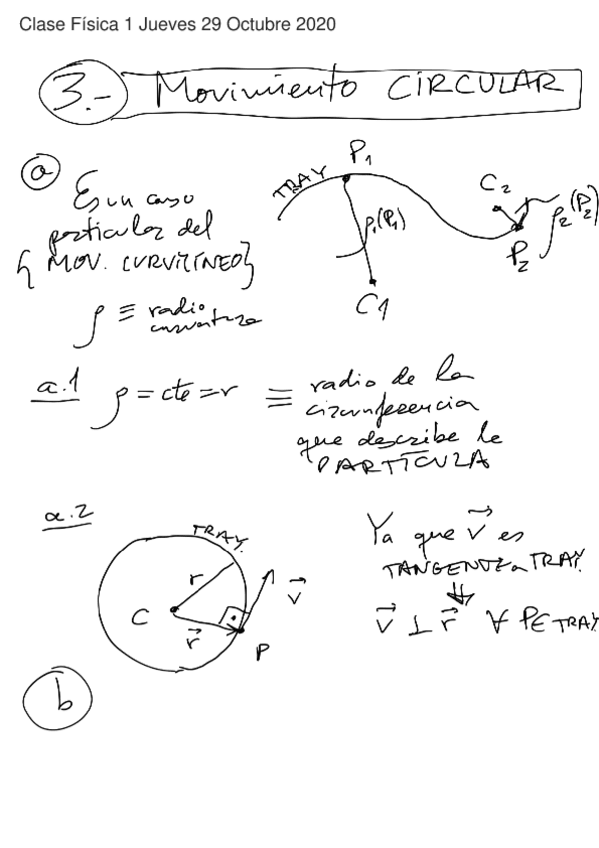 Clase Física 1 Jueves 29 Octubre 2020
3.- Movimiento CIRCULAR
a
Es un caso
particular del
{ MOV. CURVILÍNEO}
ρ ≡ radio
curvatura
TRAY
P₁
ρ₁(P₁)
C1
C₂
ρ₂(P₂)
P₂
a.1 ρ = cte = r ≡ radio de la
circunferencia
que describe la
PARTÍCULA
a.2
TRAY.
r
C
r⃗
v⃗
P
Ya que v⃗ es
TANGENTE a TRAY.
⇓
v⃗ ⊥ r⃗ ∀ P∈TRAY
b